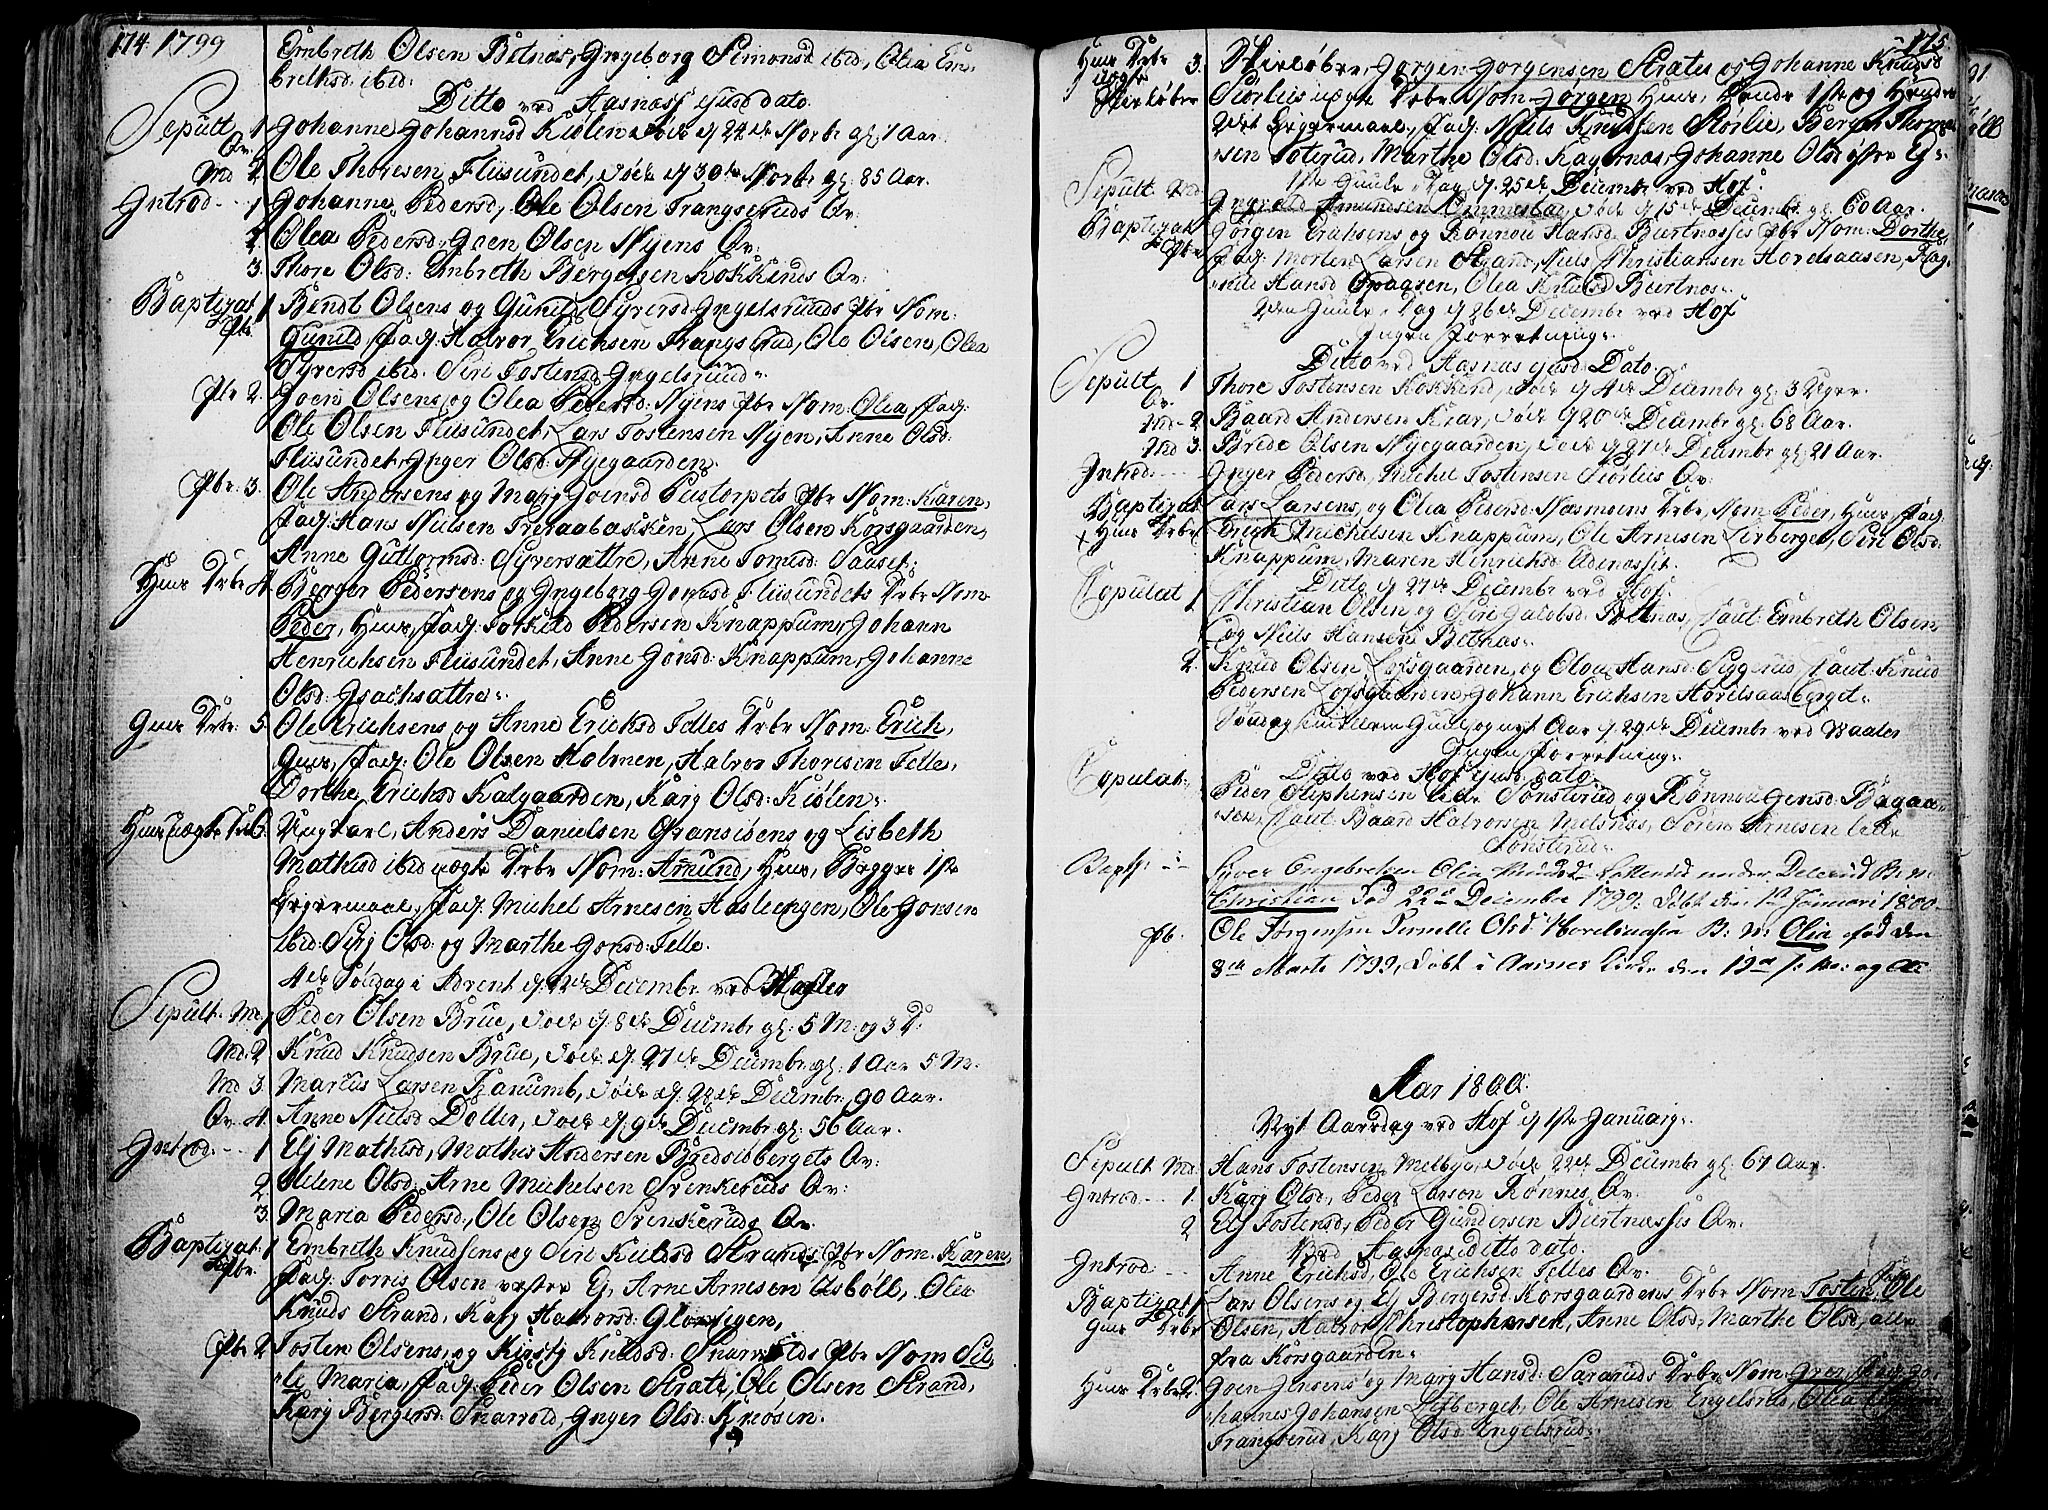 174. 1799
Embreth Olsen Botnæs, Ingeborg Simonsd ibid, Olia Em-
brethsd. ibid.
Ditto ved Aasnæss ejusd dato.
Sepult 1 Johanne Johannsd Kiølen døde d. 24de Novbr gl: 1 Aar.
Qv:
Md 2. Ole Thoresen Flisundet, døde d. 30te Novbr gl. 85 Aar.
Introd 1 Johanne Pedersd, Ole Olsen Trangseruds Qv:
2. Olea Pedersd, Joen Olsen Nyens Qv:
3. Thore Olsd: Embreth Bergersen Kokkinds Qv:
Baptizat 1 Bendt Olsens og Gunild Syversd Ingelsruuds Pbr Nom:
Pbr. Gunild, Fad: Halvor Erichsen Kangsrud, Ole Olsen, Olea
Syversd ibid. Siri Tostensd Ingelsruud.
Pbr 2. Joen Olsens og Olea Pedersd: Nyens Pbr Nom: Olea, Fad:
Ole Olsen Flisundet, Lars Tostensen Nyen, Anne Olsd:
Flisundet, Inger Olsd: Nyegaarden.
Pbr: 3. Ole Andersens og Marj Joensd Peistorpets Pbr Nom: Karen,
Fad: Hans Nielsen Trenabakken, Lars Olsen Korsgaarden,
Anne Guttormsd: Syversættre, Anne Tomesd: Sauset.
Huus Drbr 4. Berger Pedersens og Ingeborg Jonasd Flisundets Drbr Nom:
Peder, Huus, Fad: Torkild Pedersen Knappum, Johann
Henrichsen Flisundet, Anne Jonsd: Knappum, Johanne
Olsd: Isachsættre.
Huus Drbr: 5. Ole Erichsens og Anne Ericksd Felles Drbr Nom: Erich,
Huus, Fad: Ole Olsen Holmen, Halvor Thoresen Felle,
Dorthe Ericksd Kalgaarden, Karj Olsd: Kiølen.
Huus uægte Drb 6. Ungkarl, Anders Danielsen Gransidens og Lisbeth
Mathisd ibid uægte Drbr Nom: Amund, Huus, Begges 1ste
Leyermaal, Fad: Michel Arnesen Hasleengen, Ole Jonsen
ibid: Sirj Olsd: og Marthe Jonsd: Felle.
4de Søndag i Advent d. 22de Decembr ved Waaler
Sepult Md 1 Peder Olsen Brue, døde d. 8de Decembr gl: 5 M: og 3 D:
Md. 2. Knud Knudsen Brue, døde d. 27de Decembr gl: 1 Aar 5 M.
Md 3. Marcus Larsen Fanumb, døde d. 22de Decembr, 90 Aar.
Qv. 4. Anne Nielsd Doller, døde d. 9de Decembr gl: 56 Aar.
Introd. 1 Elj Mathisd, Mathis Andersen Bredsibergets Qv:
2. Helene Olsd: Arne Michelsen Svenkeruds Qv:
3. Maria Pedersd, Ole Olsen Svenkeruds Qv.
Baptizat: 1 Embreth Knudsens og Siri Kieldsd Strands Pbr Nom. Karen,
Pbr. Fad: Torris Olsen vestre Ej, Arne Arnesen Osbøll, Olia
Knuds Strand, Karj Halvorsd: Glorvigen,
Pbr 2 Tosten Olsens og Kirsty Knudsd: Snarvolds Pbr Nom Sil-
le Maria, Fad: Peder Olsen Strate, Ole Olsen Strand,
Karj Bergersd: Snarvold, Inger Olsd: Knøsen.
175.
Huus Drbr 3. Skieløber, Jørgen Jorgensen Strates og Johanne Knudsd
uægte
Skieløber Siorlies uægte Drbr Nom: Jørgen Huus, Hands 1ste og Hendes
2det Leyermaal, Fad: Niels Knudsen Siørlie, Berger Thom-
sen Toterud, Marthe Olsd: Kagernæs, Johanne Olsd østre Ej.
1ste Juule Dag d. 25de Decembr ved Hof.
Sepult Md. Ingvold Amundsen Kinnestad, døde d. 15de Decembr gl: 60 Aar.
Baptizat Jørgen Erichsens og Rønnou Hansd: Bertnæssis Pbr Nom: Dorthe,
Pbr Fad: Morten Larsen Strand, Niels Christiansen Hovelsaasen, Rag-
nild Hansd Opaasen, Olea Knudsd Bertnæs.
2den Juule Dag d. 26de Decembr ved Hof
Ingen Forretning.
Ditto ved Aasnæs ejusd: Dato.
Sepult 1 Thore Tostensen Kokkend, døde d. 4de Decembr gl: 3 Uger
Qv.
Md. 2 Baard Andersen Krar, døde d. 20de Decembr gl: 68 Aar.
Md 3. Brede Olsen Nyegaarden, døde d. 27de Decembr gl: 21 Aar.
Introd: Inger Pedersd, Michel Tostensen Siorlies Qv:
Baptizat Lars Larsens, og Olia Pedersd: Næsmoens Drbr, Nom: Peder, Huus, Fad:
x Huus Drbr Erich Michelsen Knappum, Ole Arnesen Lirberget, Siri Olsd:
Knappum, Maren Henrichsd Adenæsset.
Ditto d. 27de Decembr ved Hof.
Copulat 1. Christian Olsen og Siri Jakobsd: Botnæs, Caut: Embreth Olsen
og Niels Hansen Botnæs.
2. Knud Olsen Lofsgaarden, og Oloa Hansd: Siggerud, Caut: Knud
Pedersen Lofsgaarden, Johann Erichsen Hovelsaasberget.
Søndag imellem Juul og nyt Aar d. 29de Decembr ved Waaler
Ingen Forretning.
Ditto ved Hof ejusd: dato.
Copulat: Peder Stephensen lille Sønsterud og Rønnou Jensd: Bagaa-
sen, Caut: Baard Halvorsen Melsnæs, Søren Arnesen lille
Sønsterud.
Bapt: Iver Engebretsen Olia Knudsd: under Deserud B: N:
Christian Fød 22de Decembr 1799. Døbt den 1ste Januari 1800.
Pb. Ole Jørgensen Pernelle Olsd Hovelsaasen B: N: Olia fød den
8de Marts 1799, døbt i Aasnes Kirke den 19de
Aar 1800.
Nyt Aarsdag ved Hof d. 1ste Januarj.
Sepult Md. Hans Tostensen Melbye, døde 22de Decembr gl: 67 Aar.
Introd. 1. Karj Olsd, Peder Larson Rønnes Qv.
2 Elj Tostensd, Peder Gundersen Bertnæssis Qv:
Ved Aasnæs ditto dato.
Introd: Anne Ericksd, Ole Erichsen Felles Qv:
Baptizat 1. Lars Olsens og Elj Bergersd: Korsgaardens Drbr Nom Tosten, Fad: Ole
Huus Drbr Olsen, Halvor Christophersen, Anne Olsd, Marthe Olsd, alle
fra Korsgaarden.
Huus Drbr 2. Joen Jensens og Marj Hansd: Sararuds Drbr Nom: Jo-
hannes Johansen Lieberget, Ole Arnesen Engelsrud, Olea
Trangserud, Karj Olsd Engelsrud.